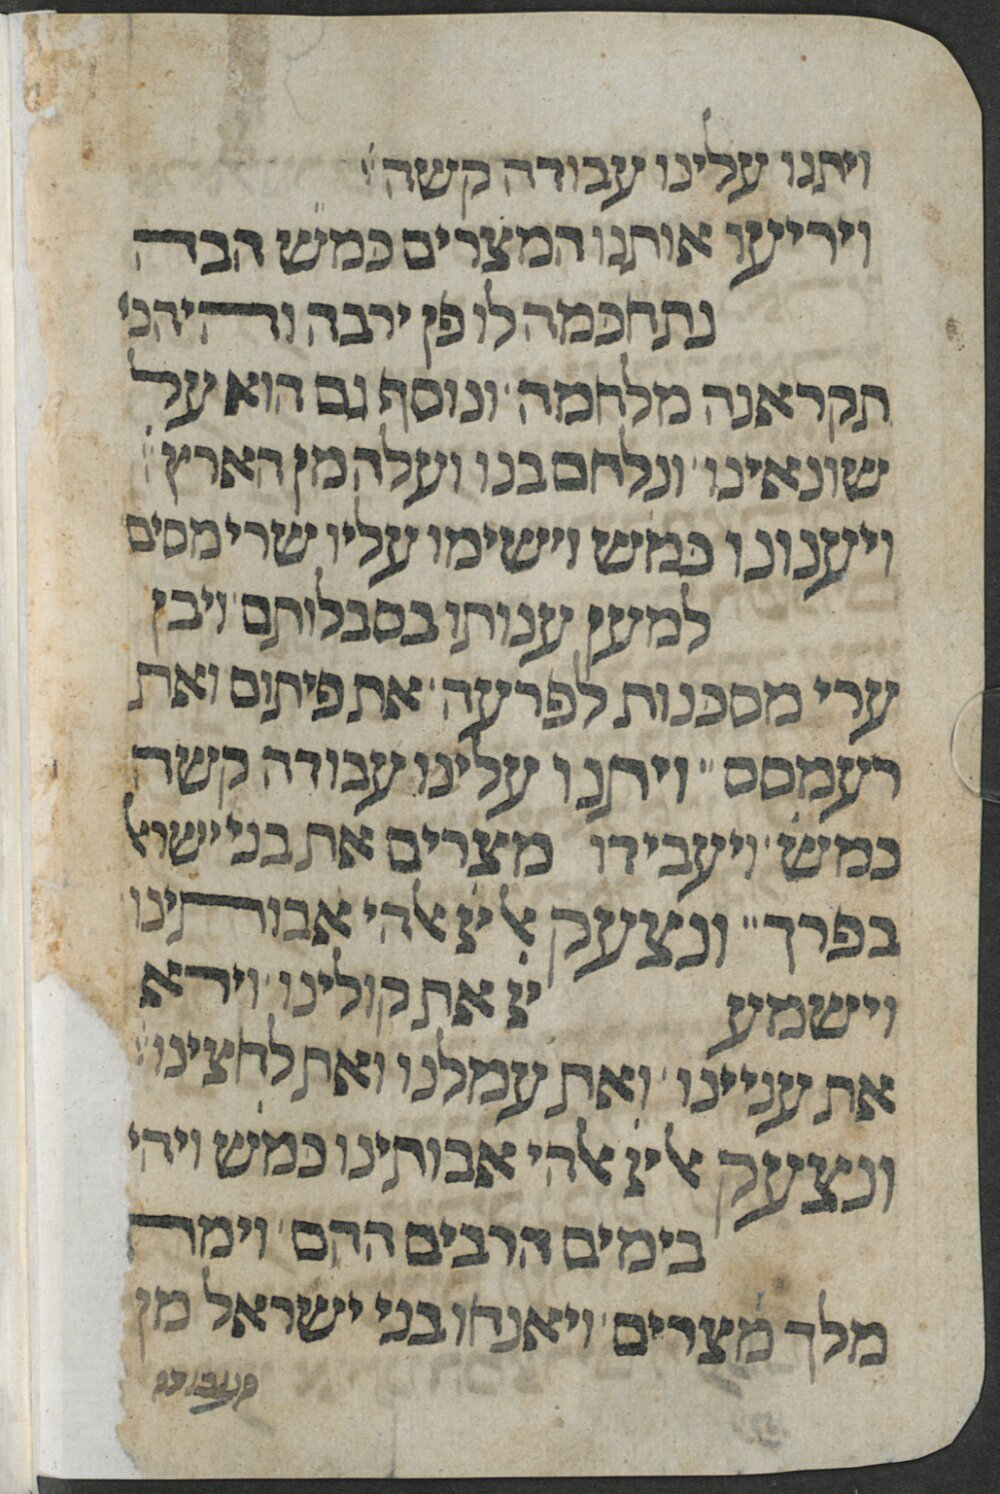 ויתנו עלינו עבודה קשה׃
ויריעו אותנו המצרים כמש הבה
נתחכמה לו פן ירבה והיה כי
תקראנה מלחמה ונוסף גם הוא על
שונאינו ונלחם בנו ועלה מן הארץ׃
ויענונו כמש וישימו עליו שרי מסים
למען ענותו בסבלותם ויבן
ערי מסכנות לפרעה את פיתום ואת
רעמסס ״ ויתנו עלינו עבודה קשה
כמש ויעבידו מצרים את בני ישראל
בפרך ״ ונצעק אל ייי אלהי אבותינו
וישמע ייי את קולינו וירא
את עניינו ואת עמלנו ואת לחצינו׃
ונצעק אל ייי אלהי אבותינו כמש ויהי
בימים הרבים ההם וימת
מלך מצרים ויאנחו בני ישראל מן